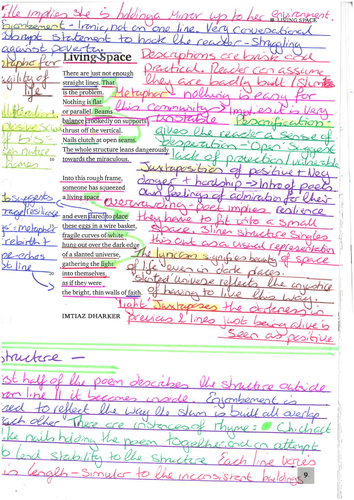 He implies she is holding a mirror up to her environment.
LIVING SPACE
Enjambement - Ironic, not on one line. Very conversational
abrupt statement to hook the reader - Struggling
against poverty.
Living Space
Descriptions are bare and
practical. Reader can assume
they are badly built / slums
There are just not enough
straight lines. That
is the problem.
Nothing is flat
or parallel. Beams
balance crookedly on supports
thrust off the vertical.
Nails clutch at open seams.
The whole structure leans dangerously
towards the miraculous.
Metaphor - nothing is easy for
this community → Implies its very
unstable Personification -
gives the reader a sense of
desperation - 'Open' Suggest
lack of protection / vulnerable
Juxtaposition of positive + neg
danger + hardship → Intro of poets
own feelings of admiration for their
Into this rough frame,
someone has squeezed
a living space
overcrowding - Place implies resilience
they have to fit into a small
space. 3 liner structure singles
this out as a visual representation
of space
and even dared to place
these eggs in a wire basket,
fragile curves of white
hung out over the dark edge
of a slanted universe,
gathering the light
into themselves,
as if they were
the bright, thin walls of faith.
The lyricism signifies beauty
of life even in dark places.
Slanted universe reflects the injustice
of having to live this way.
'Light' Juxtaposes the darkness in
previous 2 lines just being alive is
seen as positive
IMTIAZ DHARKER
structure -
first half of the poem describes the structure outside
from line 11 it becomes inside. Enjambement is
used to reflect the way the slum is built all overlap
each other There are instances of rhyme:
like nails holding the poem together and an attempt
to lend stability to the structure Each line varies
in length - similar to the inconsistent buildings
9